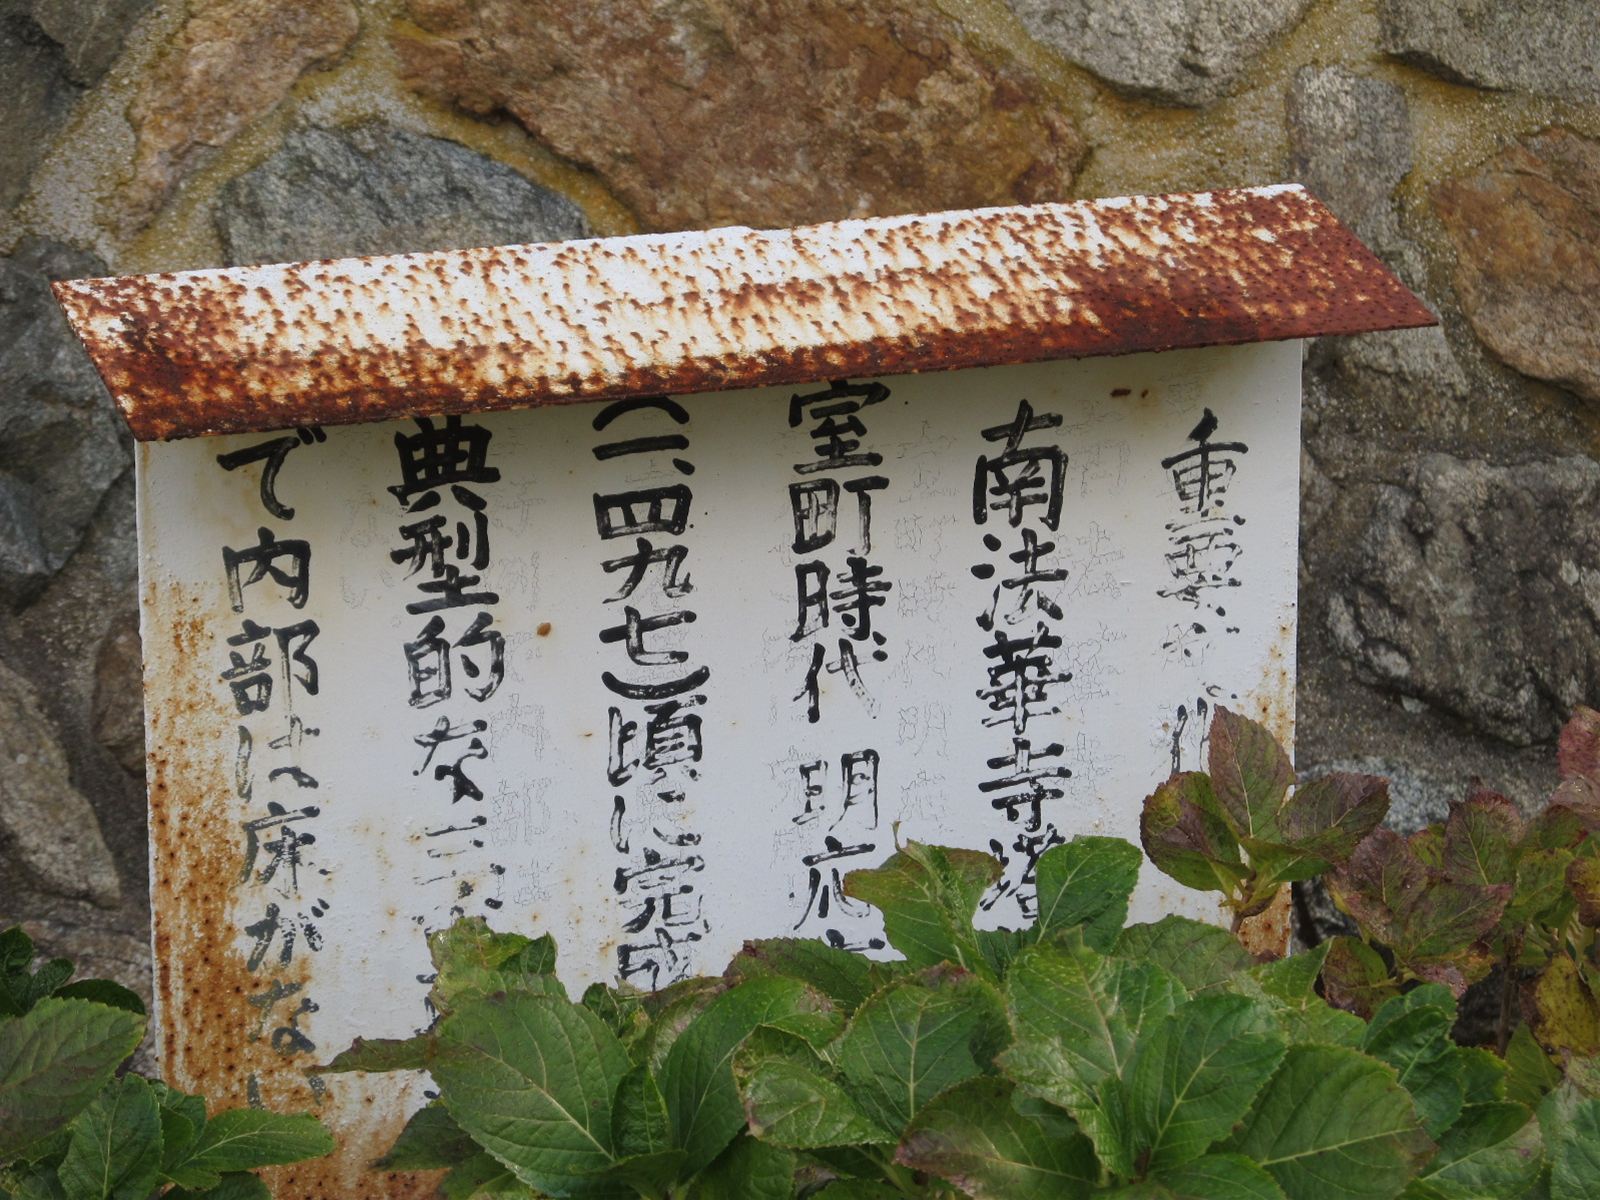 重要文化
南法華寺塔
室町時代 明応
(一、四九七)頃に完成
典型的な三重
で内部は床がない